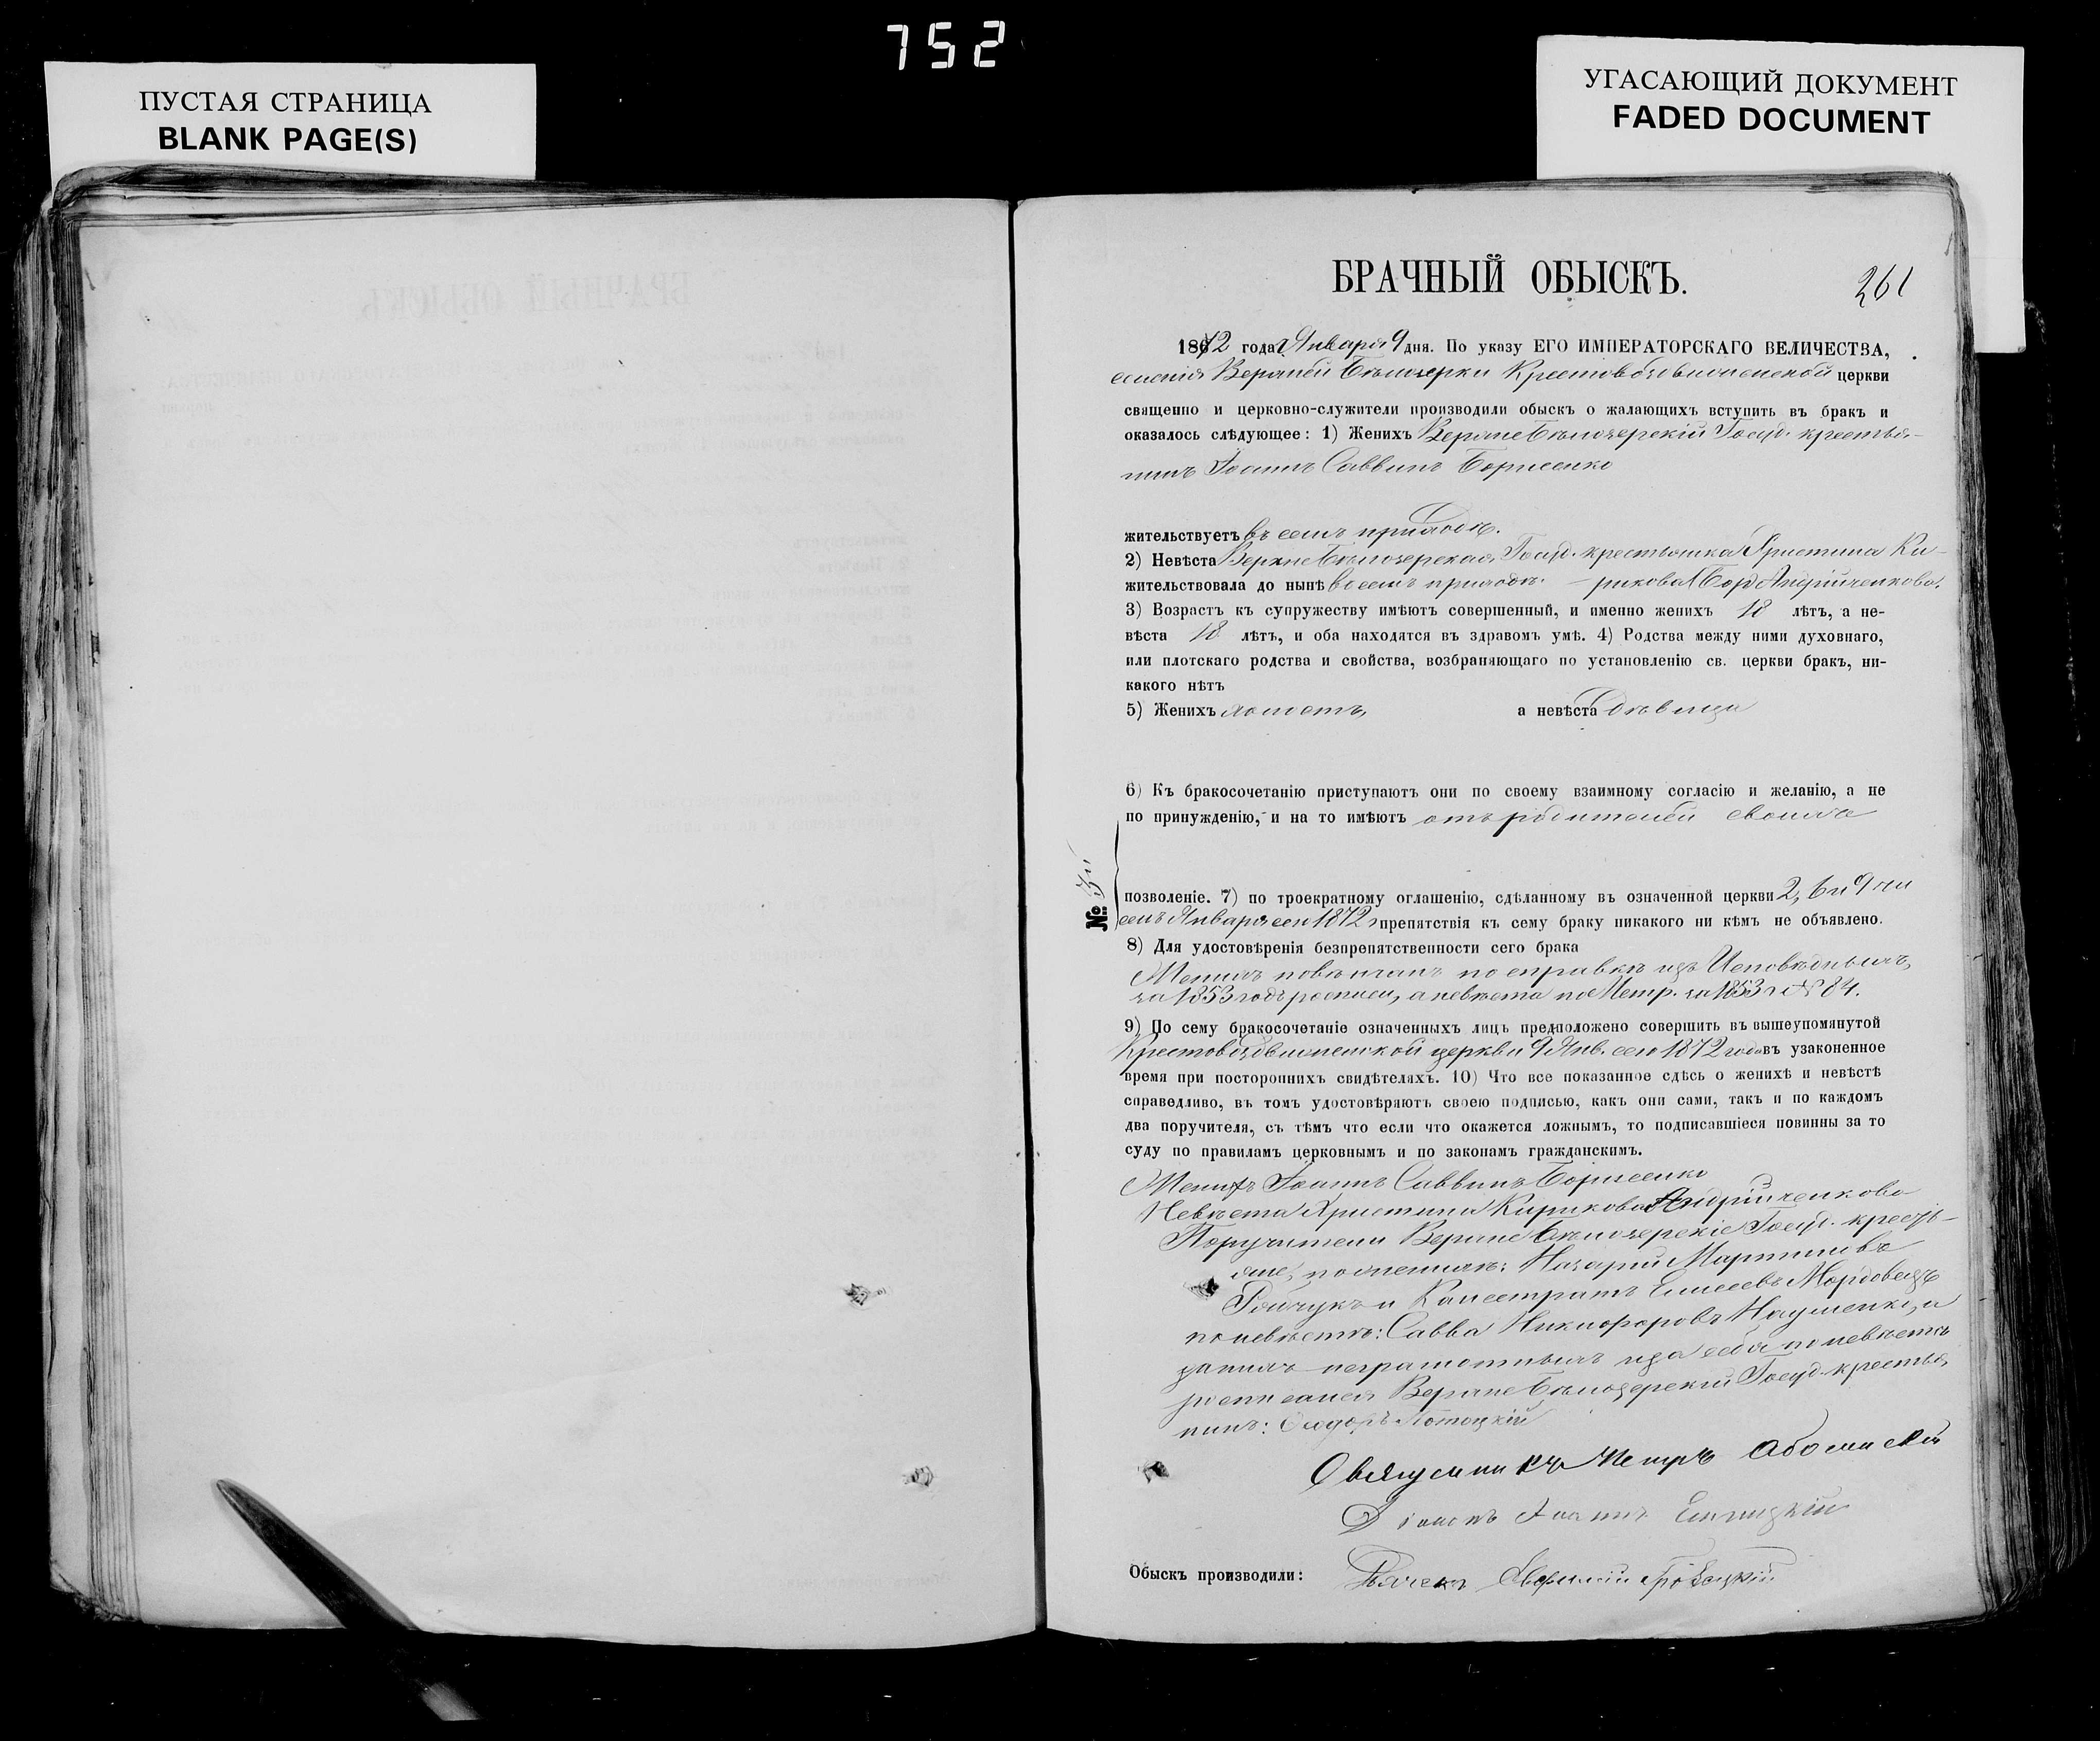 752
ПУСТАЯ СТРАНИЦА
BLANK PAGE(S)
УГАСАЮЩИЙ ДОКУМЕНТ
FADED DOCUMENT
БРАЧНЫЙ ОБЫСКЪ.
261
1872 года Января 9 дня. По указу ЕГО ИМПЕРАТОРСКАГО ВЕЛИЧЕСТВА,
селенія Верхней Бѣлозерки Крестовоздвиженской церкви
священно и церковно-служители производили обыскъ о жалающихъ вступить въ бракъ и
оказалось слѣдующее: 1) Женихъ Верхнебѣлозерскій Госуд. крестья-
нинъ Іоаннъ Саввинъ Борисенко
жительствуетъ въ семъ приходѣ.
2) Невѣста Верхнебѣлозерская Госуд. крестьянка Христина Ки-
жительствовала до нынѣ въ семъ приходѣ. – рикова Андрійченкова.
3) Возрастъ къ супружеству имѣютъ совершенный, и именно женихъ 18 лѣтъ, а не-
вѣста 18 лѣтъ, и оба находятся въ здравомъ умѣ. 4) Родства между ними духовнаго,
или плотскаго родства и свойства, возбраняющаго по установленію св. церкви бракъ, ни-
какого нѣтъ
5) Женихъ холостъ, а невѣста дѣвица
6) Къ бракосочетанію приступаютъ они по своему взаимному согласію и желанію, а не
по принужденію, и на то имѣютъ отъ родителей своихъ
№ 3й
позволеніе. 7) по троекратному оглашенію, сдѣланному въ означенной церкви 2, 6 и 9 чи
селъ Января сего 1872 г. препятствія къ сему браку никакого ни кѣмъ не объявлено.
8) Для удостовѣренія безпрепятственности сего брака
Женихъ повѣнчанъ по справкѣ изъ Исповѣдныхъ,
за 1853 годъ росписей, а невѣста по Метр. за 1853 г. № 84.
9) По сему бракосочетаніе означенныхъ лицъ предположено совершить въ вышеупомянутой
Крестовоздвиженской церкви 9 Янв. сего 1872 года въ узаконенное
время при постороннихъ свидѣтеляхъ. 10) Что все показанное сдѣсь о женихѣ и невѣстѣ
справедливо, въ томъ удостовѣряютъ своею подписью, какъ они сами, такъ и по каждомъ
два поручителя, съ тѣмъ что если что окажется ложнымъ, то подписавшіеся повинны за то
суду по правиламъ церковнымъ и по законамъ гражданскимъ.
Женихъ Іоаннъ Саввинъ Борисенко
Невѣста Христина Кирикова Андрійченкова
Поручители Верхнебѣлозерскіе Госуд. кресть-
яне, по женихѣ: Назарій Мартиновъ
Ройчукъ и Калистратъ Елисеевъ Мордовецъ
по невѣстѣ: Савва Никифоровъ Науменко, а
за нихъ неграмотныхъ и за себя по невѣстѣ
росписался Верхнебѣлозерскій Госуд. крестья
нинъ: Ѳеодоръ Потоцкій
Священникъ Петръ
Діаконъ Іоаннъ
Обыскъ производили: Дьячекъ